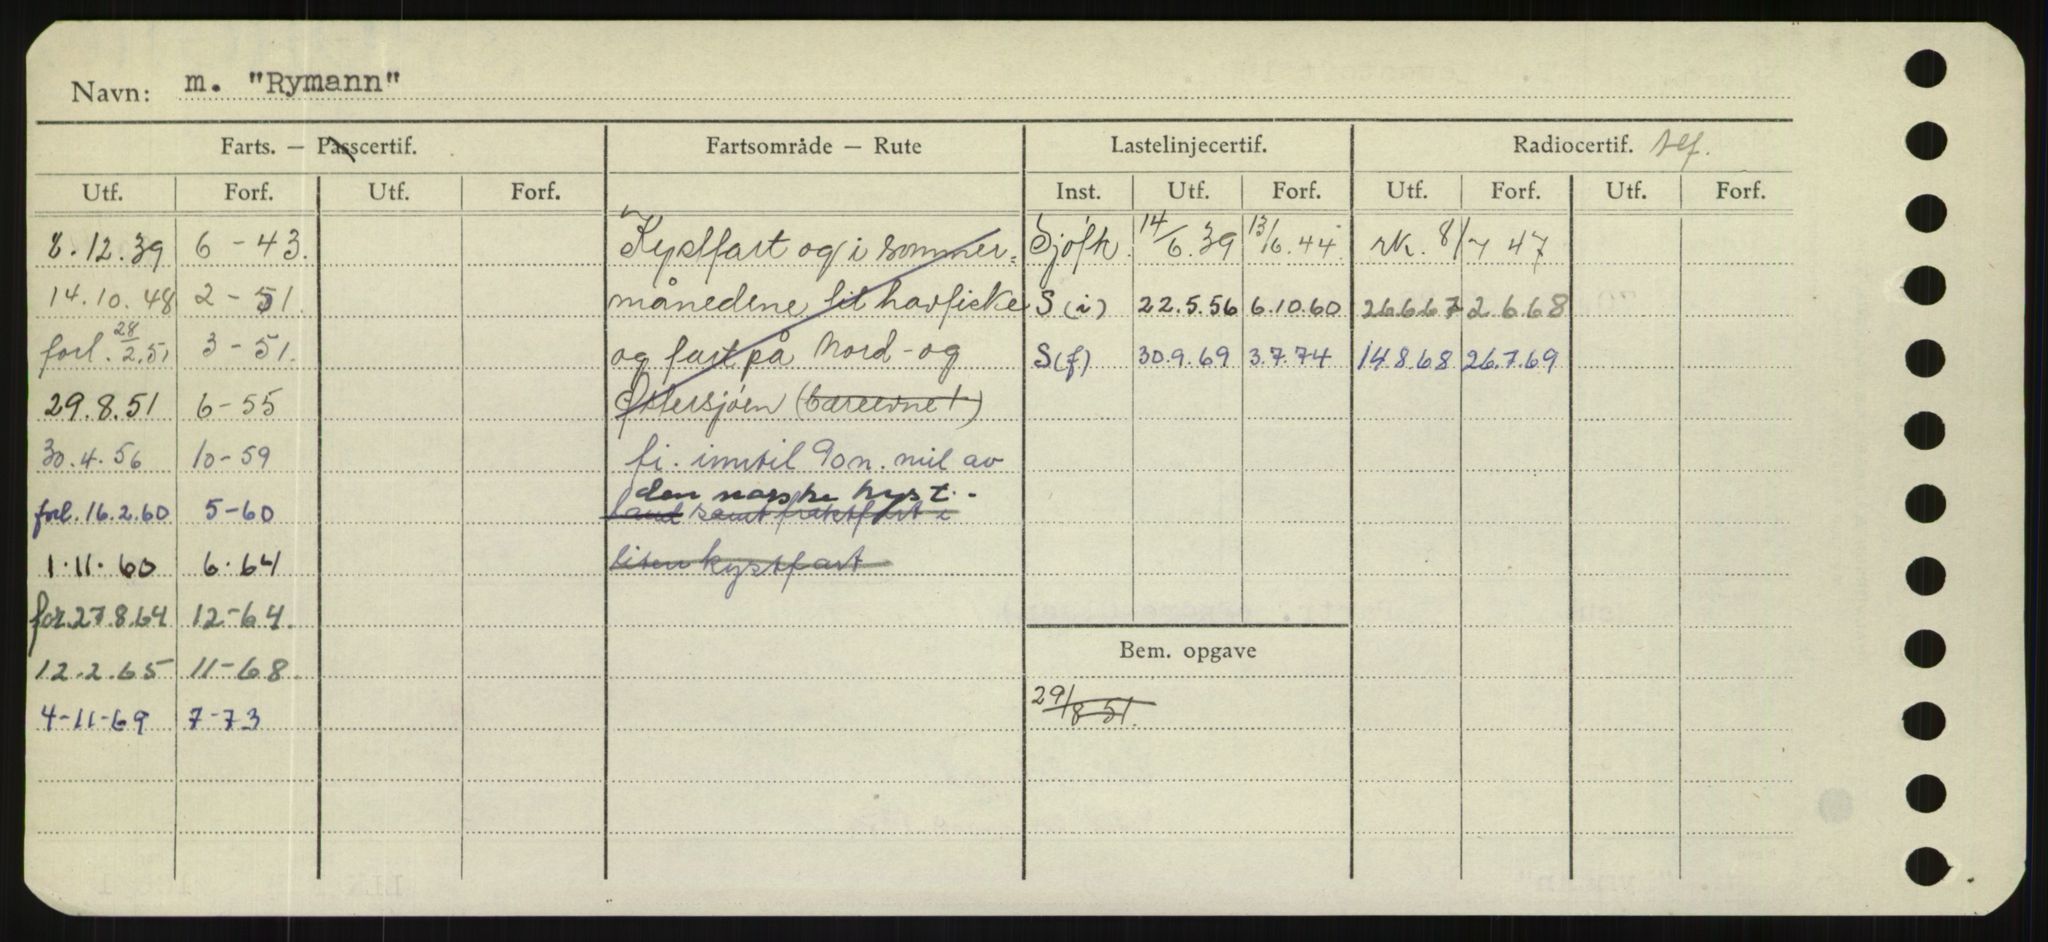 Navn: m. "Rymann"
Farts. — Passcertif. Fartsområde — Rute Lastelinjecertif. Radiocertif. tlf.
Utf. Forf. Utf. Forf. Inst. Utf. Forf. Utf. Forf. Utf. Forf.
8.12.39 6-43. Kystfart og i sommer= Sjøfk. 14/6.39 13/6.44 rk. 8/7 47
14.10.48 2-51. månedene til havfiske S(i) 22.5.56 6.10.60 26.6.67 2.6.68
forl. 28/2.51 3-51. og fart på Nord- og S(f) 30.9.69 3.7.74 14.8.68 26.7.69
29.8.51 6-55 Østersjøen (bareevne!)
30.4.56 10-59 fi. inntil 90 n. mil av
den norske kyst.
forl. 16.2.60 5-60 samt fraktfart i
1.11.60 6.64 liten kystfart
for. 27.8.64 12-64.
12.2.65 11-68. Bem. opgave
4-11-69 7-73 29/8 51.